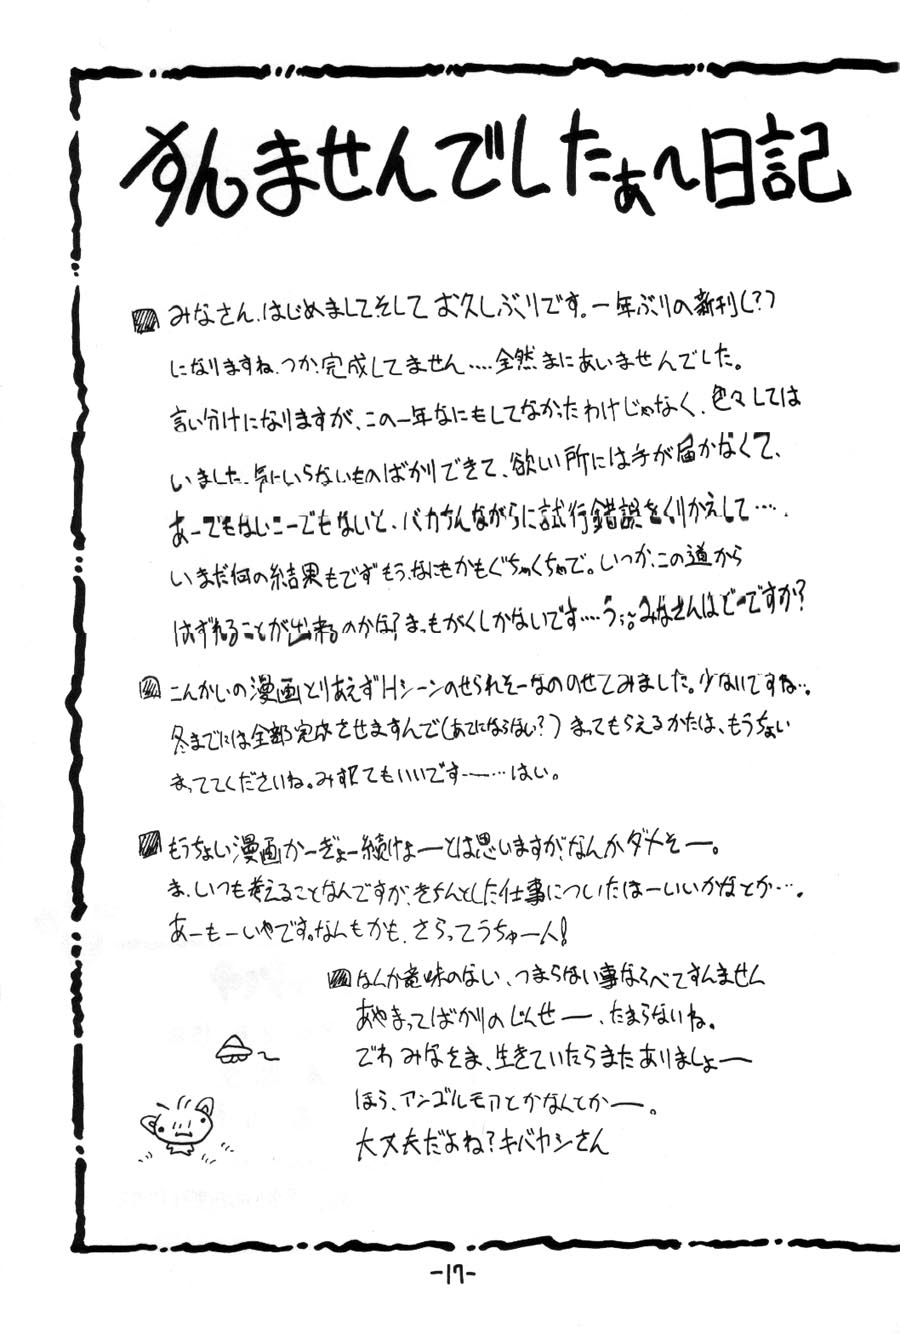 すんませんでしたぁ～日記
みなさん、はじめましてそして お久しぶりです。一年ぶりの新刊(?)
になりますね、つか、完成してません‥‥全然まにあいませんでした。
言い分けになりますが、この一年なにもしてなかったわけじゃなく、色々しては
いました、気にいらないものばかりできて、欲しい所には手が届かなくて、
あーでもないこーでもないと、バカちんながらに試行錯誤をくりかえして‥‥、
いまだ何の結果もでず もう、なにもかもぐちゃぐちゃで。いつか、この道から
はずれることが出来るのかな?まっ、もがくしかないです‥‥う;。みなさんはどーですか?
こんかいの漫画とりあえずHシーンのせられそーなののせてみました。少ないですね‥。
冬までには全部完成させますんで(あてにならない?) まってもらえるかたは、もうちょい
まっててくださいね。み捨てもいいですー‥‥はい。
もうちょい漫画かーぎょー続けよーとは思いますが、なんかダメそー。
ま、いつも考えることなんですが、きちんとした仕事についたほーいいかなとか‥‥。
あーもーいやです。なんもかも、さらってうちゅー人!
なんか意味のない、つまらない事ならべてすんません
あやまってばかりのじんせー、たまらないね。
でわ みなさま、生きていたらまたありましょー
ほら、アンゴルモアとかなんとかー。
大丈夫だよね?キバヤシさん
-17-